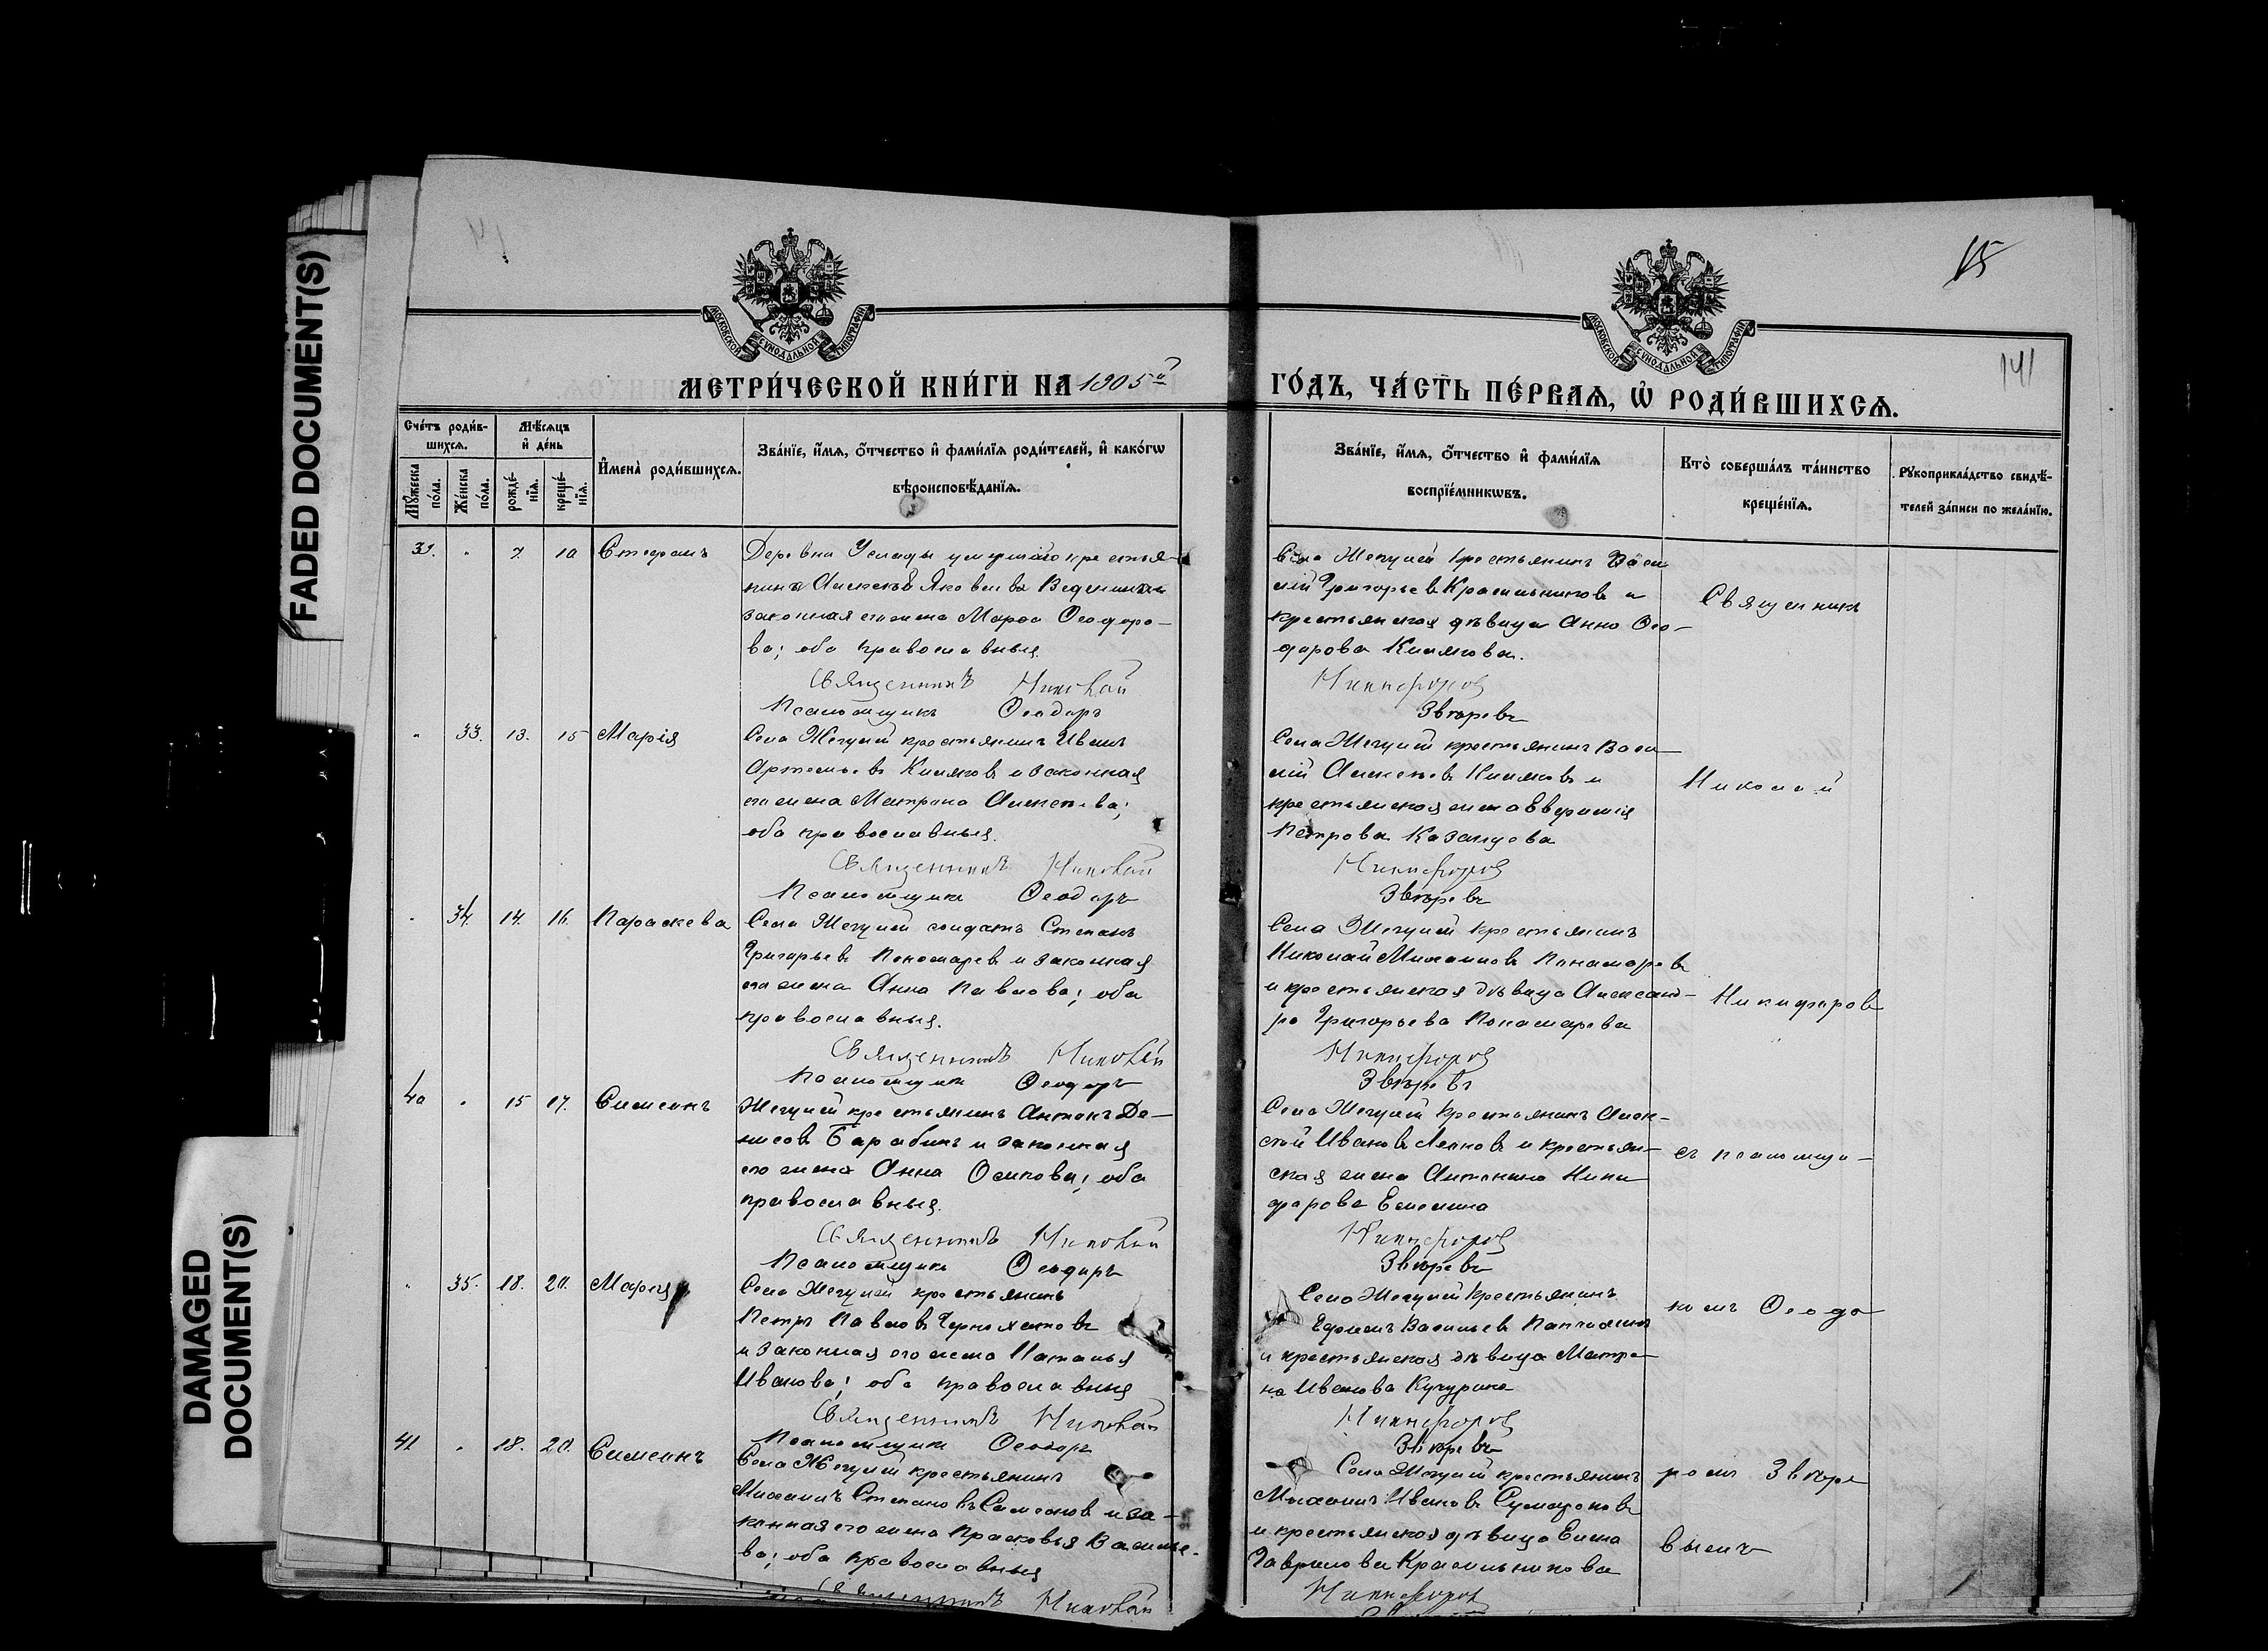 FADED DOCUMENT(S)
DAMAGED
DOCUMENT(S)
15
141
МОСКОВСКОЙ СѴНОДАЛЬНОЙ ТИПОГРАФІИ
МОСКОВСКОЙ СѴНОДАЛЬНОЙ ТИПОГРАФІИ
МЕТРИ́ЧЕСКОЙ КНИ́ГИ НА 1905й
ГО́ДЪ, ЧА́СТЬ ПЕ́РВАЯ, Ѡ҆ РОДИ́ВШИХСЯ.
Сче́тъ роди́в-
шихся.
Мѣ́сяцъ
и҆ де́нь
Мꙋ́жеска по́ла.
Же́нска по́ла.
рожде́-
нїя.
креще́-
нїя.
И҆мена̀ роди́вшихся.
Зва́нїе, и҆́мя, ѻ҆́тчество и҆ фами́лїя роди́телей, и҆ како́гѡ
вѣроисповѣ́данїя.
Зва́нїе, и҆́мя, ѻ҆́тчество и҆ фами́лїя
воспрїе́мникѡвъ.
Кто̀ соверша́лъ та́инство
креще́нїя.
Рꙋкоприкла́дство свидѣ́-
телей за́писи по жела́нїю.
39. " 7. 10 Стефанъ
Деревни крестья-
нина Алексѣя Яковлева и
законная его жена Марѳа Ѳеодоро-
ва; оба православныя.
Священникъ Николай
Псаломщикъ Ѳеодоръ
Села Жегулей крестьянинъ Васи-
лій Григорьевъ Красильниковъ и
крестьянская дѣвица Анна Ѳео-
дорова Климова.
Никифоровъ
Звѣревъ
Священникъ
" 33. 13. 15 Марія
Села Жегулей крестьянинъ Иванъ
Артемьевъ и законная
его жена Матрона Алексѣева;
оба православныя.
Священникъ Николай
Псаломщикъ Ѳеодоръ
Села Жегулей крестьянинъ Васи-
лій Алексѣевъ и
крестьянская жена Евфросинія
Петрова Казанцева
Никифоровъ
Звѣревъ
Николай
" 34. 14. 16. Параскева
Села Жегулей солдатъ Степанъ
Григорьевъ Пономаревъ и законная
его жена Анна Павлова; оба
православныя.
Священникъ Николай
Псаломщикъ Ѳеодоръ
Села Жегулей крестьянинъ
Николай Михаиловъ Понамаревъ
и крестьянская дѣвица Александ-
ра Григорьева Понамарева
Никифоровъ
Звѣревъ
Никифоровъ
40 " 15 17. Симеонъ
Жегулей крестьянинъ Антонъ Де-
нисовъ Барабинъ и законная
его жена Анна Осипова; оба
православныя.
Священникъ Николай
Псаломщикъ Ѳеодоръ
Села Жегулей крестьянинъ Алек-
сѣй Ивановъ и крестьян-
ская жена Антонина Ники-
форова Емелина
Никифоровъ
Звѣревъ
съ псаломщи-
" 35. 18. 20. Марія
Села Жегулей крестьянинъ
Петръ Павловъ
и законная его жена Наталья
Иванова; оба православныя
Священникъ Николай
Псаломщикъ Ѳеодоръ
Села Жегулей крестьянинъ
Ефремъ Васильевъ
и крестьянская дѣвица Матро-
на Иванова Кучурина
Никифоровъ
Звѣревъ
комъ Ѳеодо
41 " 18. 20. Симеонъ
Села Жегулей крестьянинъ
Михаилъ Степановъ Симоновъ и за-
конная его жена Прасковья Василье-
ва; оба православныя
Священникъ Николай
Села Жегулей крестьянинъ
Михаилъ Ивановъ
и крестьянская дѣвица Елена
Гаврилова Красильникова
Никифоровъ
ромъ Звѣре
вымъ